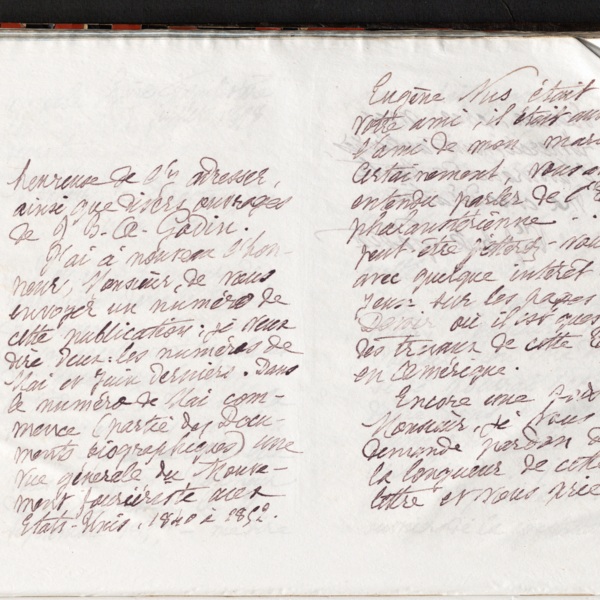 heureuse de vous adresser,
ainsi que divers ouvrages
de J. B. A. Godin.
J'ai à nouveau l'hon-
neur, Monsieur, de vous
envoyer un numéro de
cette publication ; je veux
dire deux : les numéros de
Mai et Juin derniers. Dans
le numéro de Mai com-
mence (partie des Docu-
ments biographiques) une
vue générale du Mouve-
ment fouriériste aux
Etats-Unis, 1840 à 1852.
Eugène Nus était
votre ami, il était au
l'ami de mon mar
Certainement, vous
entendu parler de l'E
phalanstérienne
peut-être jetterez-vous
avec quelque intérêt
yeux sur les pages
Devoir où il est ques
des travaux de cette E
en Amérique.
Encore une
Monsieur, je vous
demande pardon d
la longueur de cette
lettre et vous prie